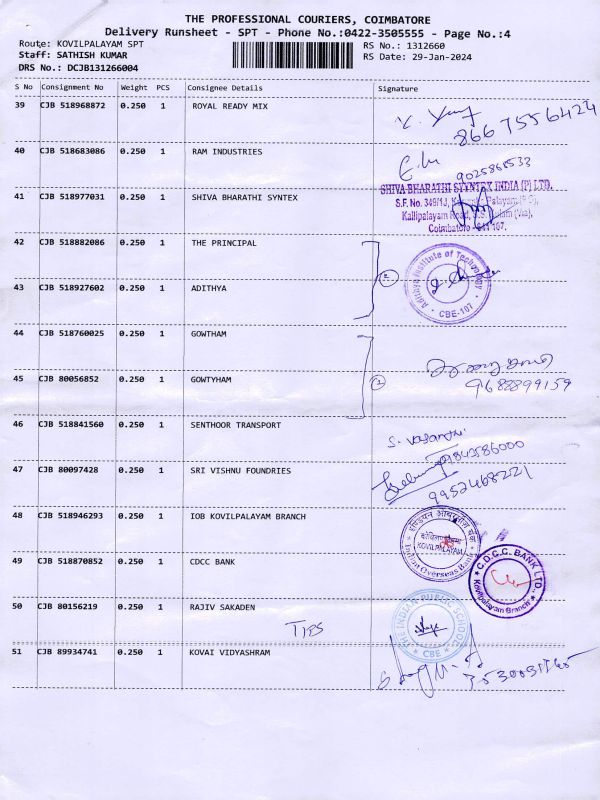 THE PROFESSIONAL COURIERS, COIMBATORE
Delivery Runsheet - SPT - Phone No.:0422-3505555 - Page No.:4
Route: KOVILPALAYAM SPT
RS No.: 1312660
Staff: SATHISH KUMAR
RS Date: 29-Jan-2024
DRS No.: DCJB131266004
S No Consignment No Weight PCS Consignee Details Signature
39 CJB 518968872 0.250 1 ROYAL READY MIX
8667556424
40 CJB 518683086 0.250 1 RAM INDUSTRIES
SHIVA BHARATHI SYNTEX INDIA (P) LTD.
41 CJB 518977031 0.250 1 SHIVA BHARATHI SYNTEX
S.F. No. 349/1J,
Kallipalayam Road,
Coimbatore - 641 107.
42 CJB 518882086 0.250 1 THE PRINCIPAL
2
Adithya Institute of Technology
CBE-107
43 CJB 518927602 0.250 1 ADITHYA
44 CJB 518760025 0.250 1 GOWTHAM
45 CJB 80056852 0.250 1 GOWTYHAM
2
9688899159
46 CJB 518841560 0.250 1 SENTHOOR TRANSPORT
S. Vasanthi
9843586000
47 CJB 80097428 0.250 1 SRI VISHNU FOUNDRIES
9952468221
48 CJB 518946293 0.250 1 IOB KOVILPALAYAM BRANCH
KOVILPALAYAM
Indian Overseas Bank
49 CJB 518870852 0.250 1 CDCC BANK
C.D.C.C. BANK LTD.
Kovilpalayam Branch
50 CJB 80156219 0.250 1 RAJIV SAKADEN
TIPS
THE INDIAN PUBLIC SCHOOL
CBE
51 CJB 89934741 0.250 1 KOVAI VIDYASHRAM